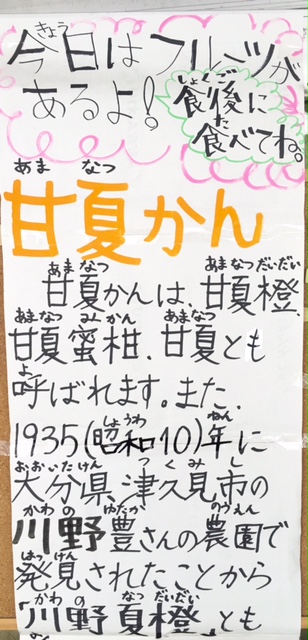 きょう
今日はフルーツが
あるよ!
しょくご
食後に
た
食べてね
あま なつ
甘夏かん
あまなつ あまなつだいだい
甘夏かんは、甘夏橙
あまなつ みかん あまなつ
甘夏蜜柑、甘夏とも
よ
呼ばれます。また、
しょうわ ねん
1935(昭和10)年に
おおいたけん つくみし
大分県津久見市の
かわの ゆたか のうえん
川野豊さんの農園で
はっけん
発見されたことから
かわの なつだいだい
「川野夏橙」とも